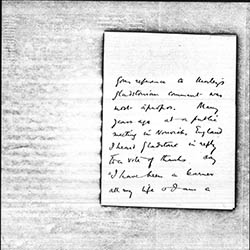 Your reference to Morley's
Gladstonian comment was
most apropos. Many
years ago at a public
meeting in Norwich, England
I heard Gladstone in reply
to a vote of thanks say
"I have been a learner
all my life & I am a